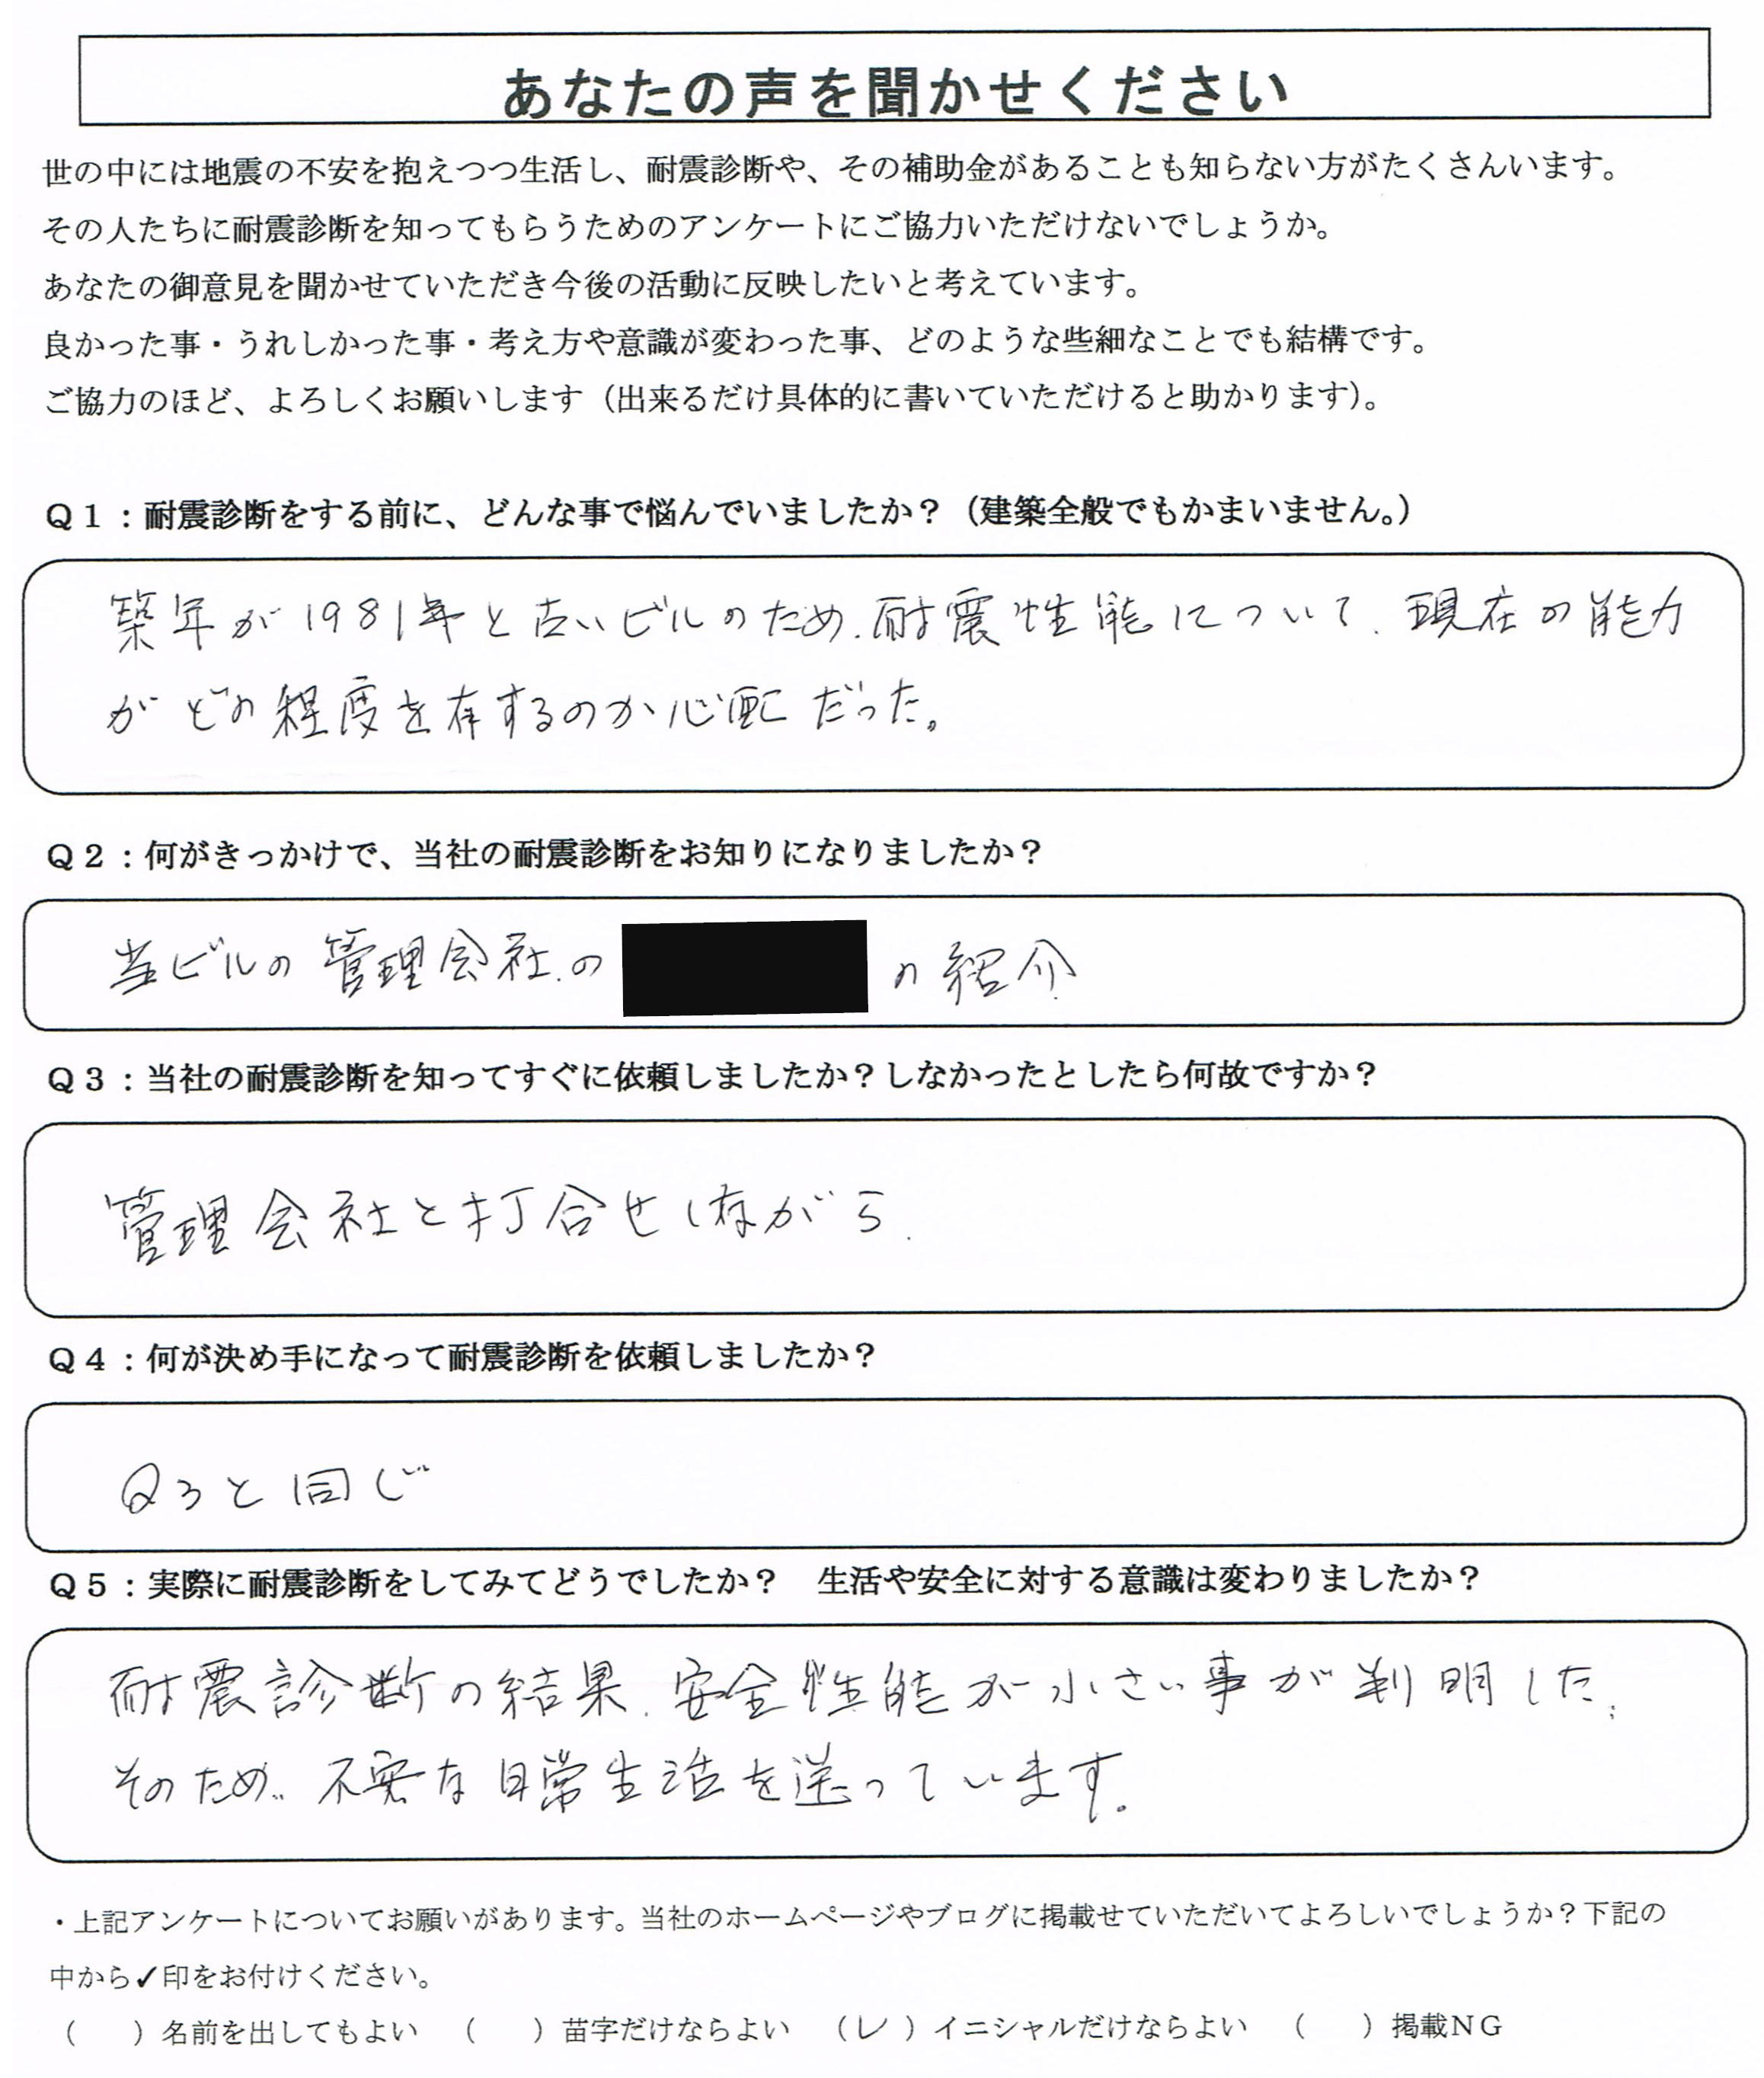 あなたの声を聞かせください
世の中には地震の不安を抱えつつ生活し、耐震診断や、その補助金があることも知らない方がたくさんいます。
その人たちに耐震診断を知ってもらうためのアンケートにご協力いただけないでしょうか。
あなたの御意見を聞かせていただき今後の活動に反映したいと考えています。
良かった事・うれしかった事・考え方や意識が変わった事、どのような些細なことでも結構です。
ご協力のほど、よろしくお願いします（出来るだけ具体的に書いていただけると助かります）。
Ｑ１：耐震診断をする前に、どんな事で悩んでいましたか？（建築全般でもかまいません。）
築年が1981年と古いビルのため、耐震性能について、現在の能力
がどの程度を有するのか心配だった。
Ｑ２：何がきっかけで、当社の耐震診断をお知りになりましたか？
当ビルの管理会社の の紹介
Ｑ３：当社の耐震診断を知ってすぐに依頼しましたか？しなかったとしたら何故ですか？
管理会社と打合せしながら
Ｑ４：何が決め手になって耐震診断を依頼しましたか？
Q3と同じ
Ｑ５：実際に耐震診断をしてみてどうでしたか？　生活や安全に対する意識は変わりましたか？
耐震診断の結果、安全性能が小さい事が判明した、
そのため、不安な日常生活を送っています。
・上記アンケートについてお願いがあります。当社のホームページやブログに掲載せていただいてよろしいでしょうか？下記の
中から✓印をお付けください。
（　　）名前を出してもよい　（　　）苗字だけならよい　（レ）イニシャルだけならよい　（　　）掲載ＮＧ